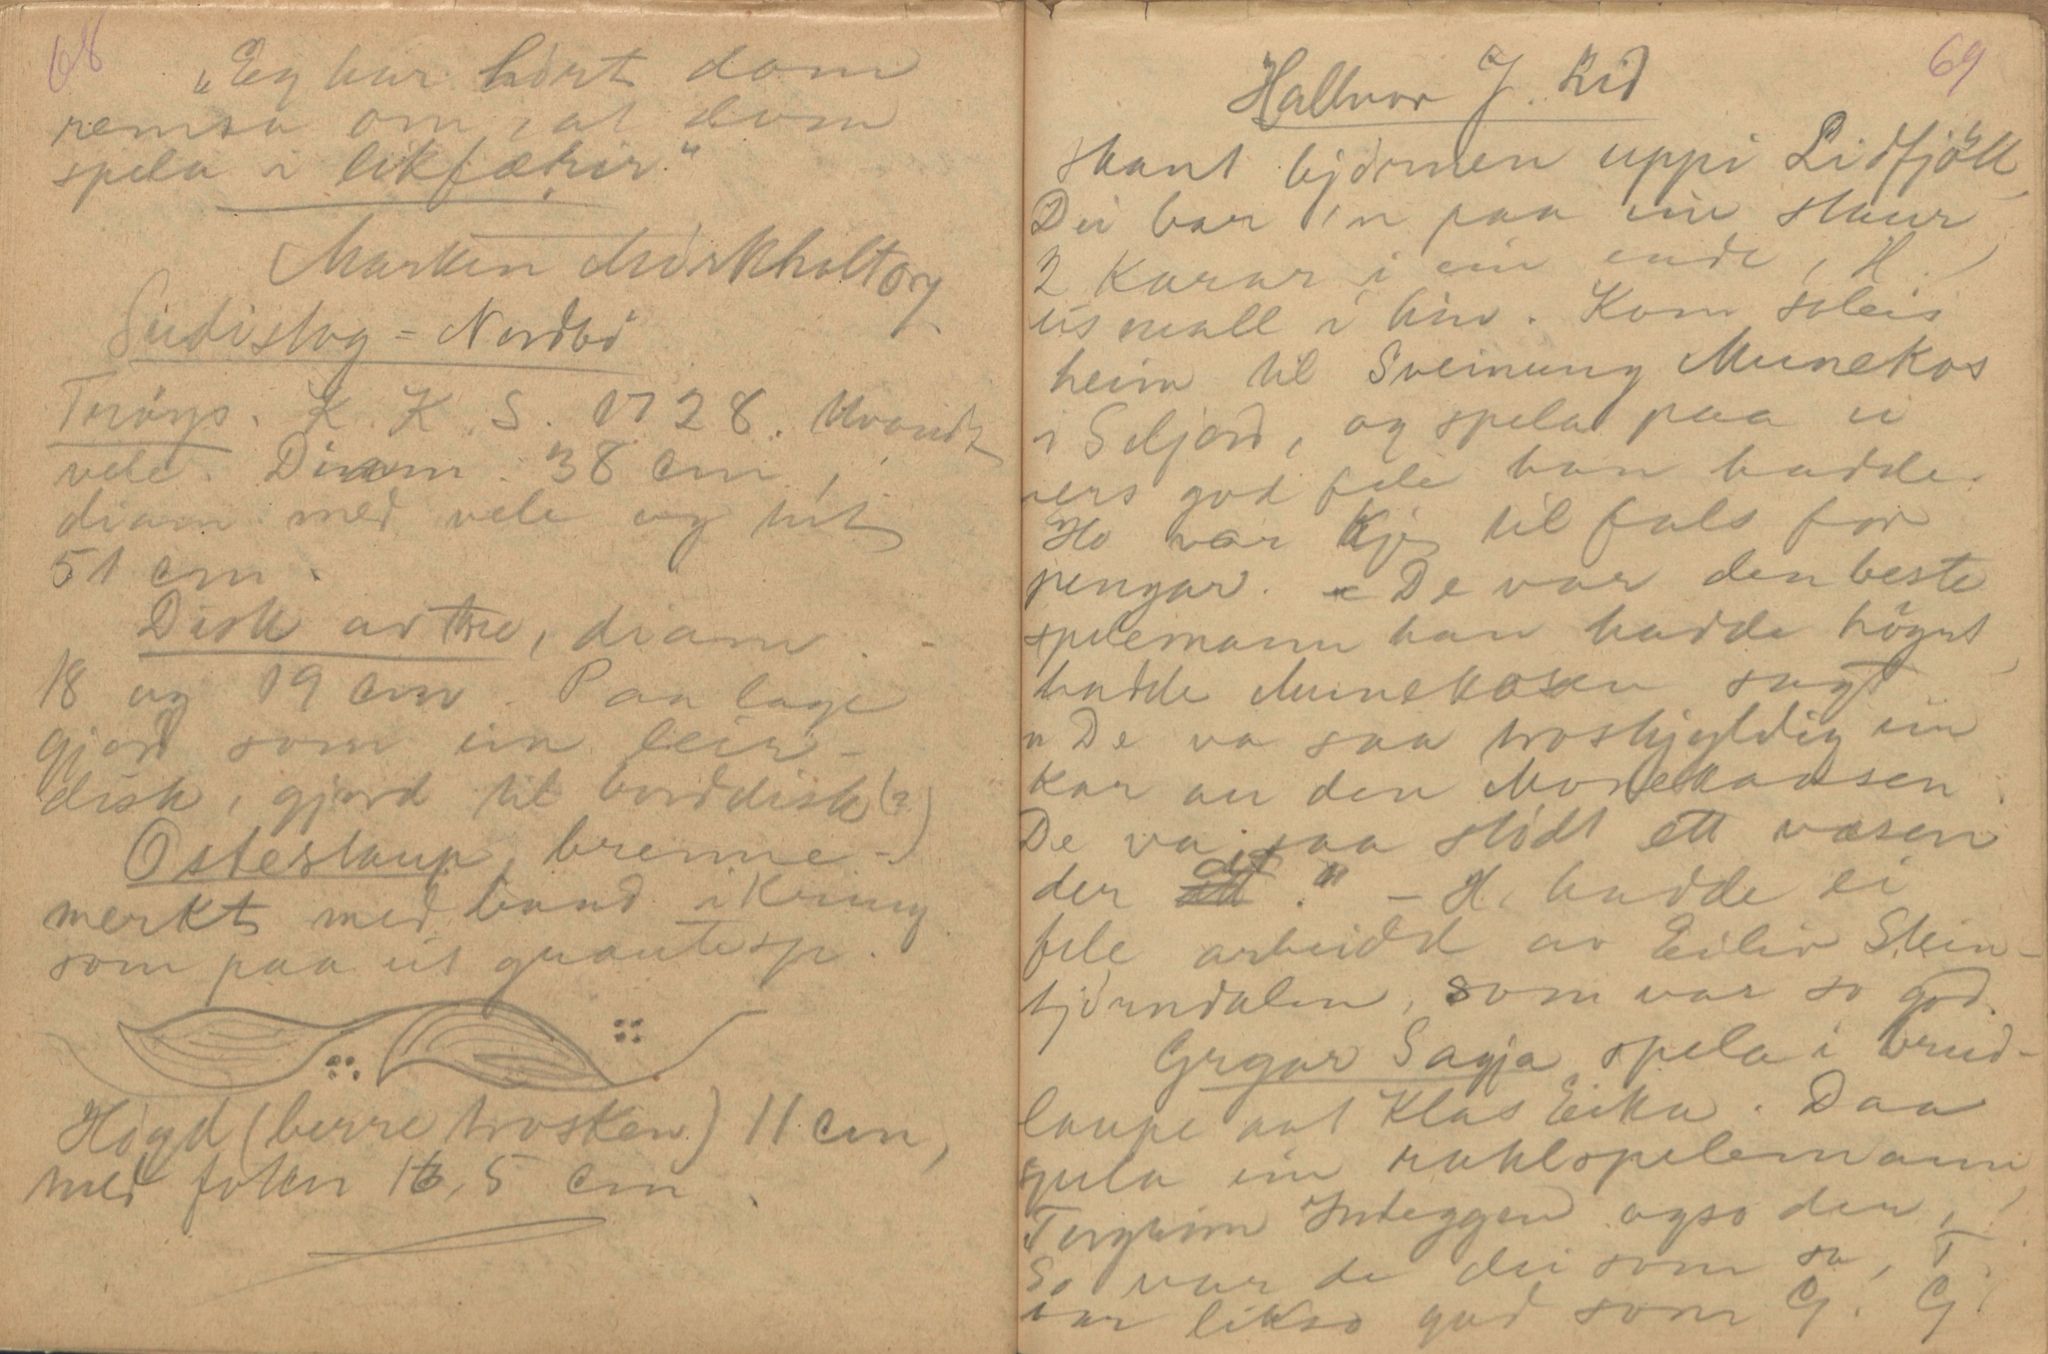 68
"Eg har hört dom
remsa om, at dom
spela i likfærir."
Marken Mörkholtory
Sudistog = Nordbö
Triøys. K. K. S. 1728. Kvorvd
vele. Diam. 38 cm,
diam med vele og
51 cm.
Disk av tre, diam.
18 og 19 cm. Paa lage
gjord som ein leir-
disk, gjord til borddisk (?)
Ostestaup, brenne-
merkt med baand ikring
som paa eit
Høgd (berre trosken) 11 cm,
med foten 16,5 cm.
69
Hallvor J. Lid
skaut bjørnen uppi Lidfjöll,
Dei bar 'n paa ein staur
2 karar i ein ende, H.
eismall i hin. Kom soleis
heim til Sveinung Munekos
i Seljord, og spela paa ei
vers god fele han hadde.
Ho var kje til fals for
pengar. - De var den beste
spelemann han hadde högrt,
hadde Munekosen sagt
"De va saa troskjyldig ein
kar au den Monekaasen.
De va saa stödt ett væsen
der ." - H. hadde ei
fele arbeidd av Eiliv Stein-
tjörndalen, som var so god.
Grgar Sagja spela i brud-
laupe aat Klas Eika. Daa
spela ein raklspelemann,
Torgrim Integgen ogso der,
So var de dei som sa, T.
var likso god som G. G.